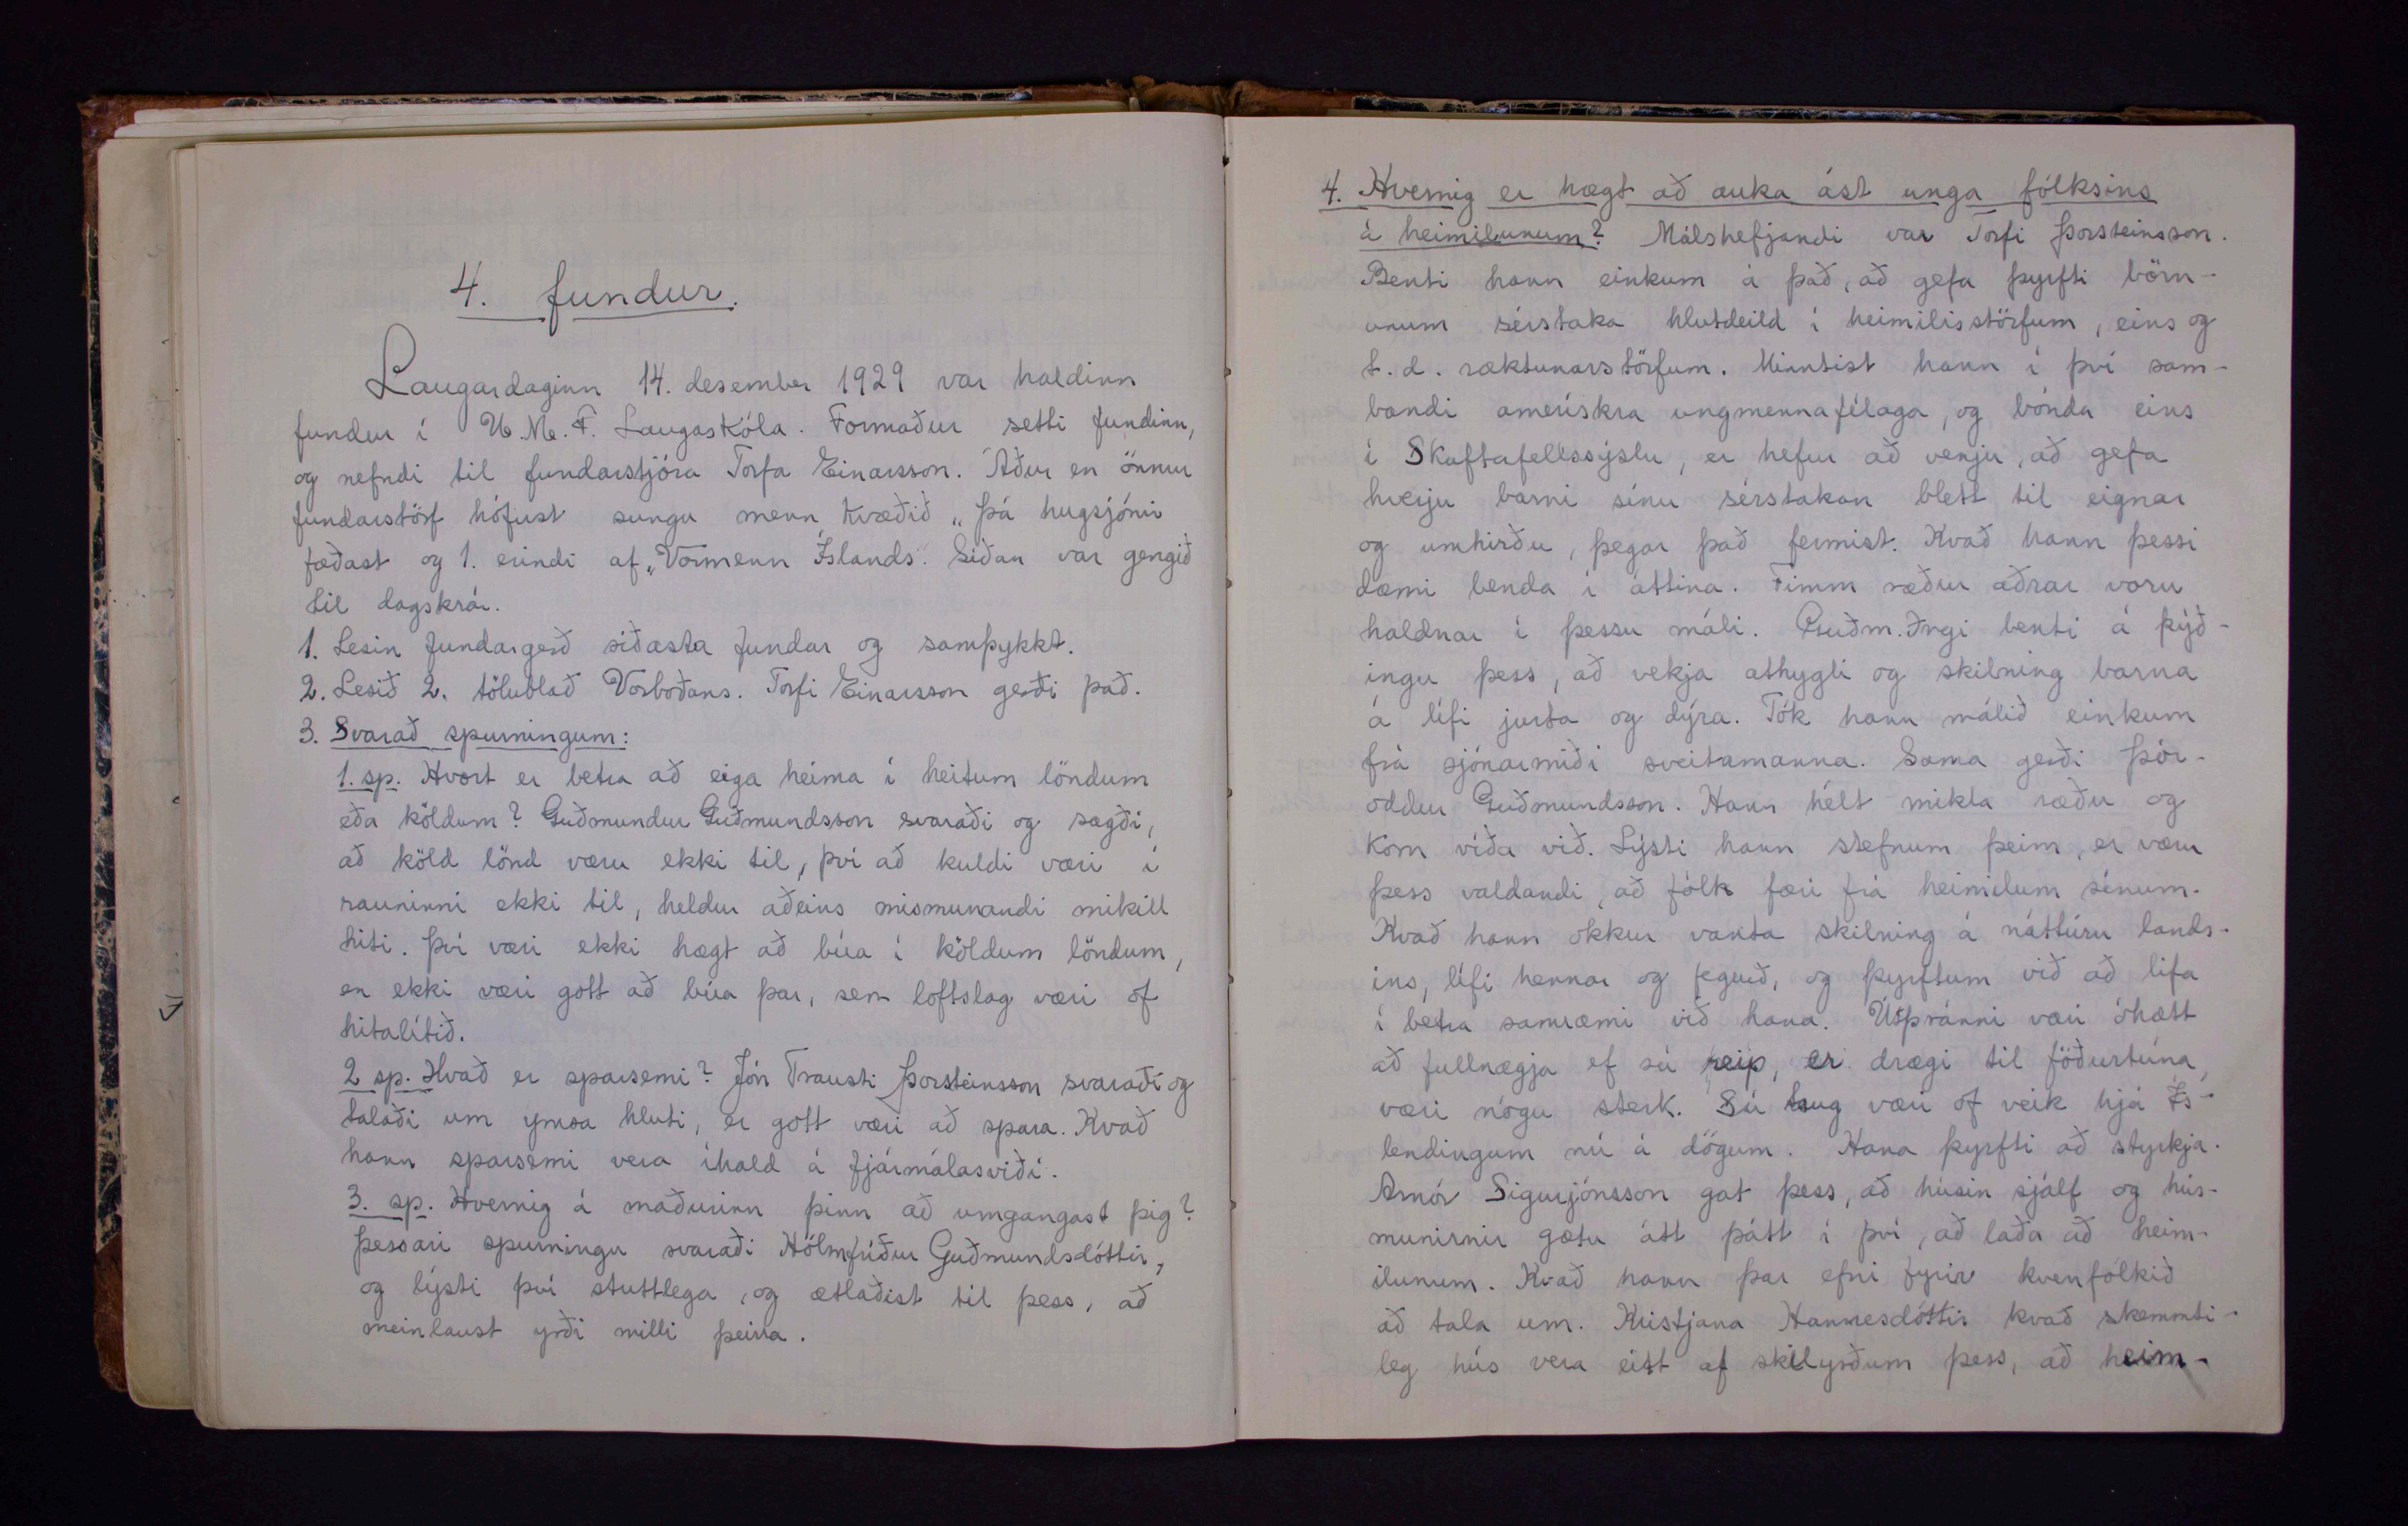 4. fundur.
Laugardaginn 14. desember 1929 var haldinn
fundur í U.M.F. Laugaskóla. Formaður setti fundinn,
og nefndi til fundarstjóra Torfa Einarsson. Áður en önnur
fundarstörf hófust sungu menn kvæðið „Þá hugsjónir
fæðast og 1. erindi af „Vormenn Íslands". Síðan var gengið
til dagskrár.
1. Lesin fundargerð síðasta fundar og samþykkt.
2. Lesið 2. tölublað Vorboðans. Torfi Einarsson gerði það.
3. Svarað spurningum:
1. sp. Hvort er betra að eiga heima í heitum löndum
eða köldum? Guðmundur Guðmundsson svaraði og sagði,
að köld lönd væru ekki til, því að kuldi væri í
rauninni ekki til, heldur aðeins mismunandi mikill
hiti. Því væri ekki hægt að búa í köldum löndum,
en ekki væri gott að búa þar, sem loftslag væri of
hitalítið.
2 sp. Hvað er sparsemi? Jón Trausti Þorsteinsson svaraði og
talaði um ymsa hluti, er gott væri að spara. Kvað
hann sparsemi vera íhald á fjármálasviði.
3. sp. Hvernig á maðurinn þinn að umgangast þig?
Þessari spurningu svaraði Hólmfríður Guðmundsdóttir,
og lýsti því stuttlega, og ætlaðist til þess, að
meinlaust yrði milli þeirra.
4. Hvernig er hægt að auka ást unga fólksins
á heimilunum? Málshefjandi var Torfi Þorsteinsson.
Benti hann einkum á það, að gefa þyrfti börn-
unum sérstaka hlutdeild í heimilisstörfum, eins og
t.d. ræktunarstörfum. Minntist hann í því sam-
bandi amerískra ungmennafélaga, og bónda eins
í Skaftafellssýslu, er hefur að venju, að gefa
hverju barni sínu sérstakan blett til eignar
og umhirðu, þegar það fermist. Kvað hann þessi
dæmi benda í áttina. Fimm ræður aðrar voru
haldnar í þessu máli. Guðm. Ingi benti á þýð-
ingu þess, að vekja athygli og skilning barna
á lífi jurta og dýra. Tók hann málið einkum
frá sjónarmiði sveitamanna. Sama gerði Þór-
oddur Guðmundsson. Hann hélt mikla ræðu og
kom víða við. Lýsti hann stefnum þeim, er væru
þess valdandi, að fólk færi frá heimilum sínum.
Kvað hann okkur vanta skilning á náttúru lands-
ins, lífi hennar og fegurð, og þyrftum við að lifa
í betra samræmi við hana. Útþránni væri óhætt
að fullnægja ef sú reip, er drægi til föðurtúna,
væri nógu sterk. Sú taug væri of veik hjá Ís-
lendingum nú á dögum. Hana þyrfti að styrkja.
Arnór Sigurjónsson gat þess, að húsin sjálf og hús-
munirnir gætu átt þátt í því, að laða að heim-
ilunum. Kvað hann þar efni fyrir kvenfólkið
að tala um. Kristjana Hannesdóttir kvað skemmti-
leg hús vera eitt af skilyrðum þess, að heim-